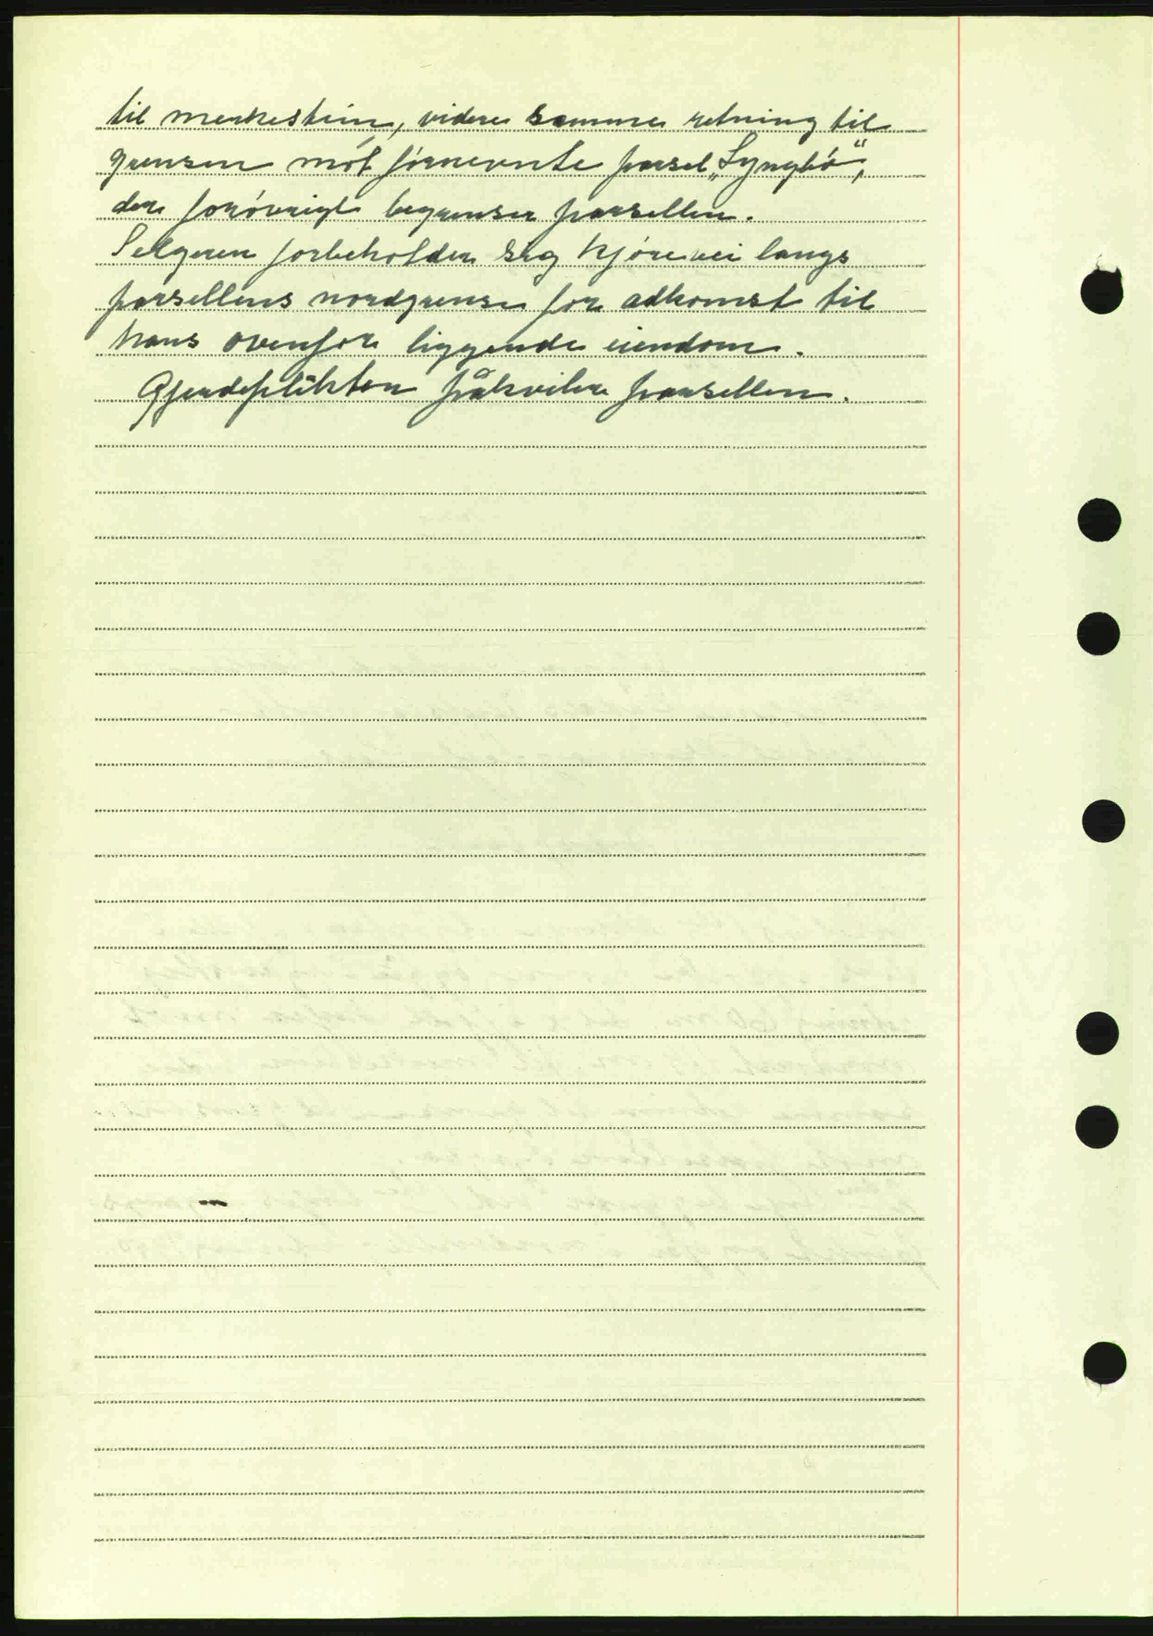 til merkestein, videre samme retning til
grensen mot førnevnte parsel „Lyngbö",
der forøvrigt begrenser parsellen.
Selgeren forbeholder sig kjørevei langs
parsellens nordgrense for adkomst til
hans ovenfor liggende eiendom.
Gjerdeplikten påkviler parsellen.